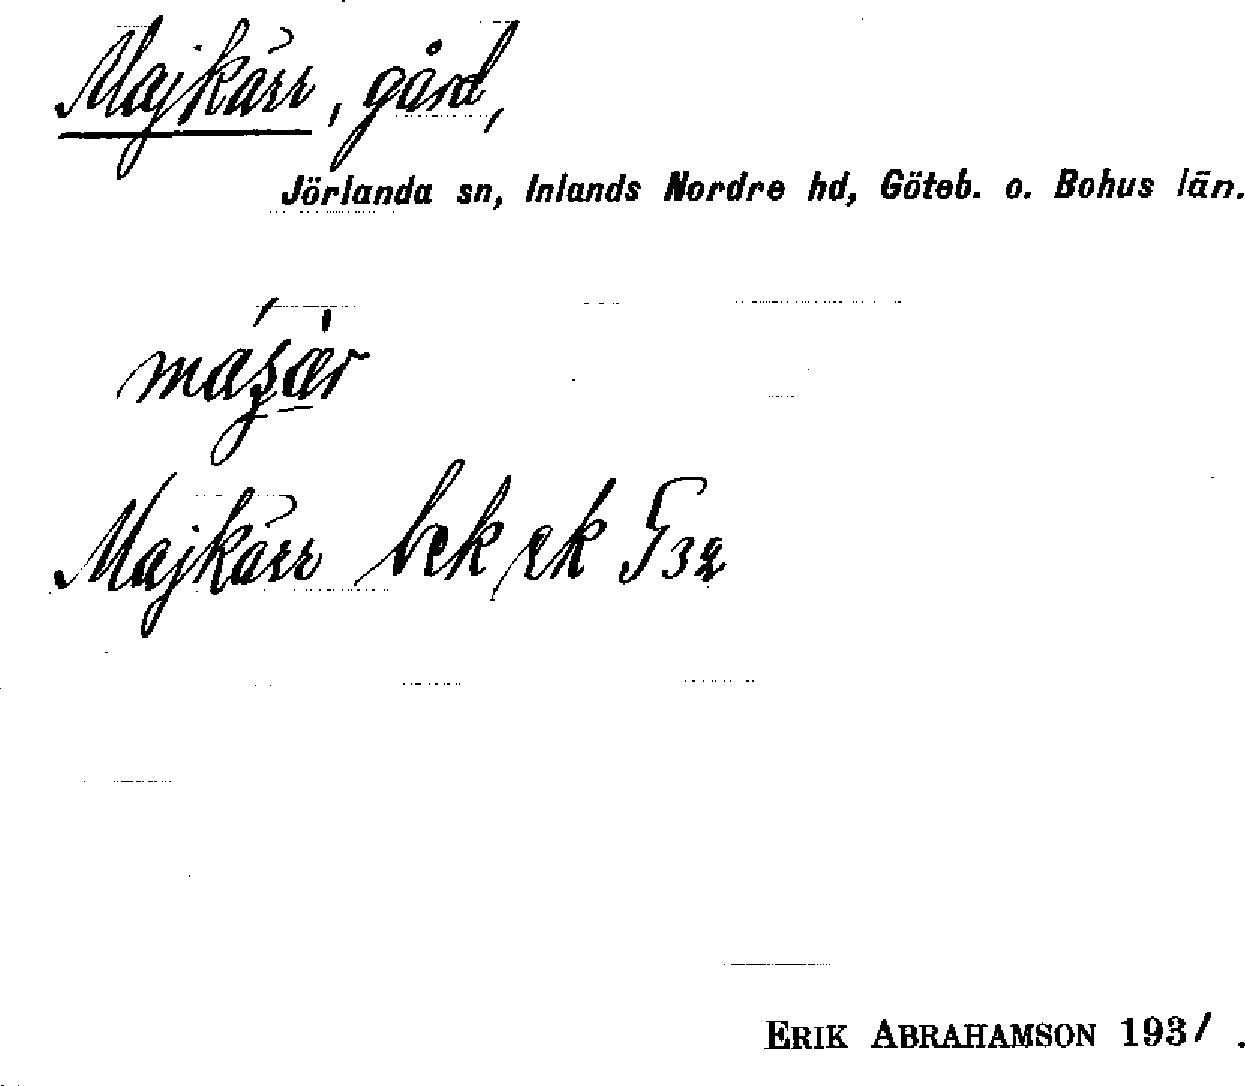 Majkärr, gård,
Jörlanda sn, Inlands Nordre hd, Göteb. o. Bohus län.
Majkärr bek ek
ERIK ABRAHAMSON 1931.